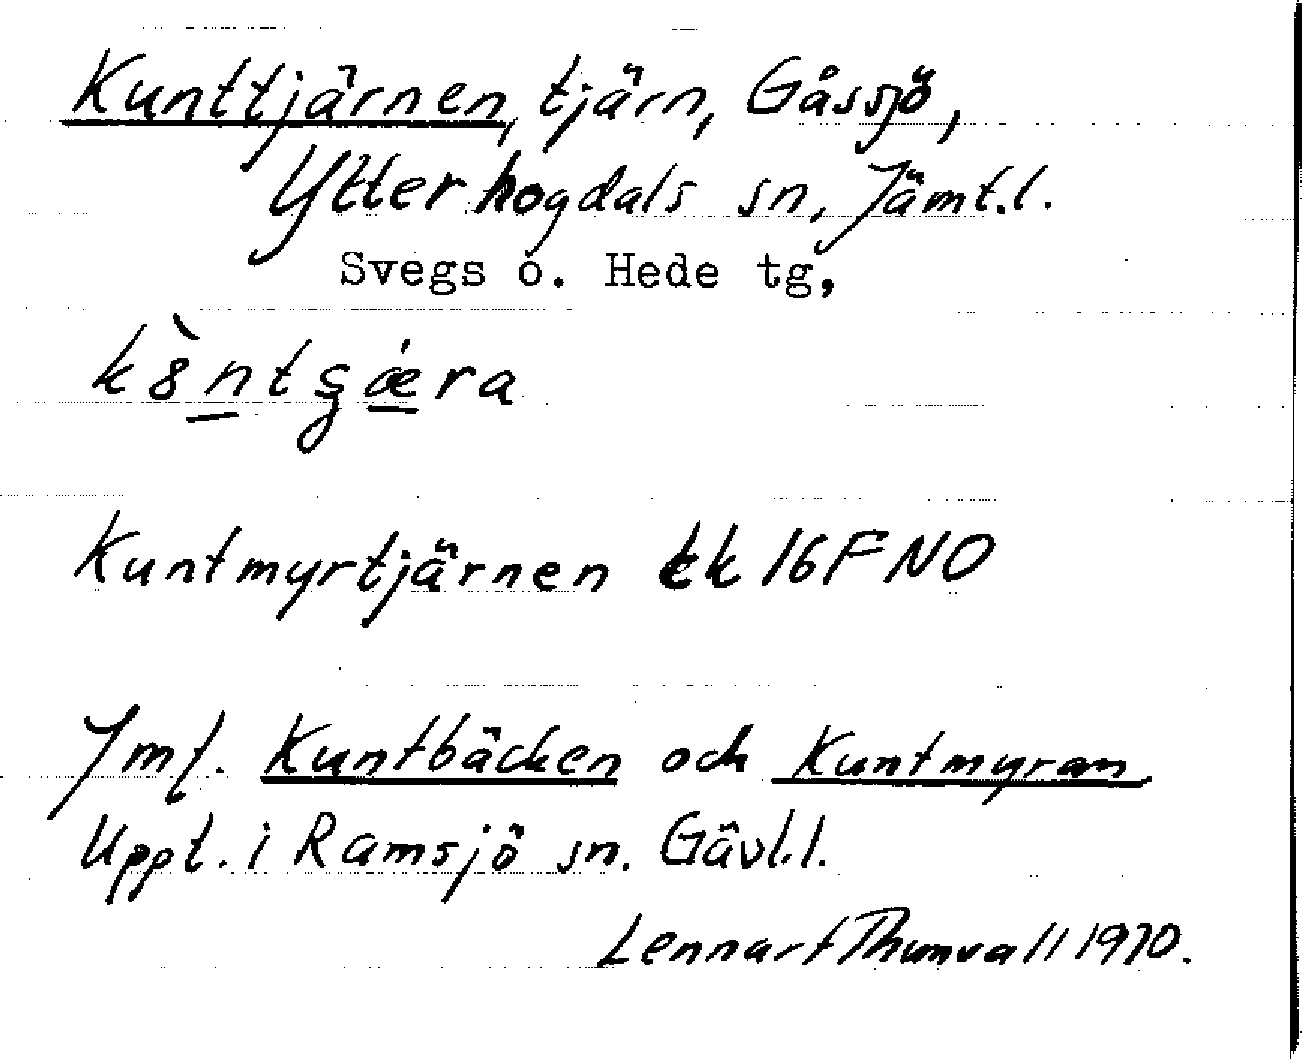 Kunttjärnen, tjärn, Gåssjö,
Ytterhogdals sn, Jämt.l.
Svegs o. Hede tg,
k8̀ntʂǽra
Kuntmyrtjärnen ek 16F NO
Jmf. Kuntbäcken och Kuntmyran.
Uppt. i Ramsjö sn. Gävl.l.
Lennart Thunvall 1970.